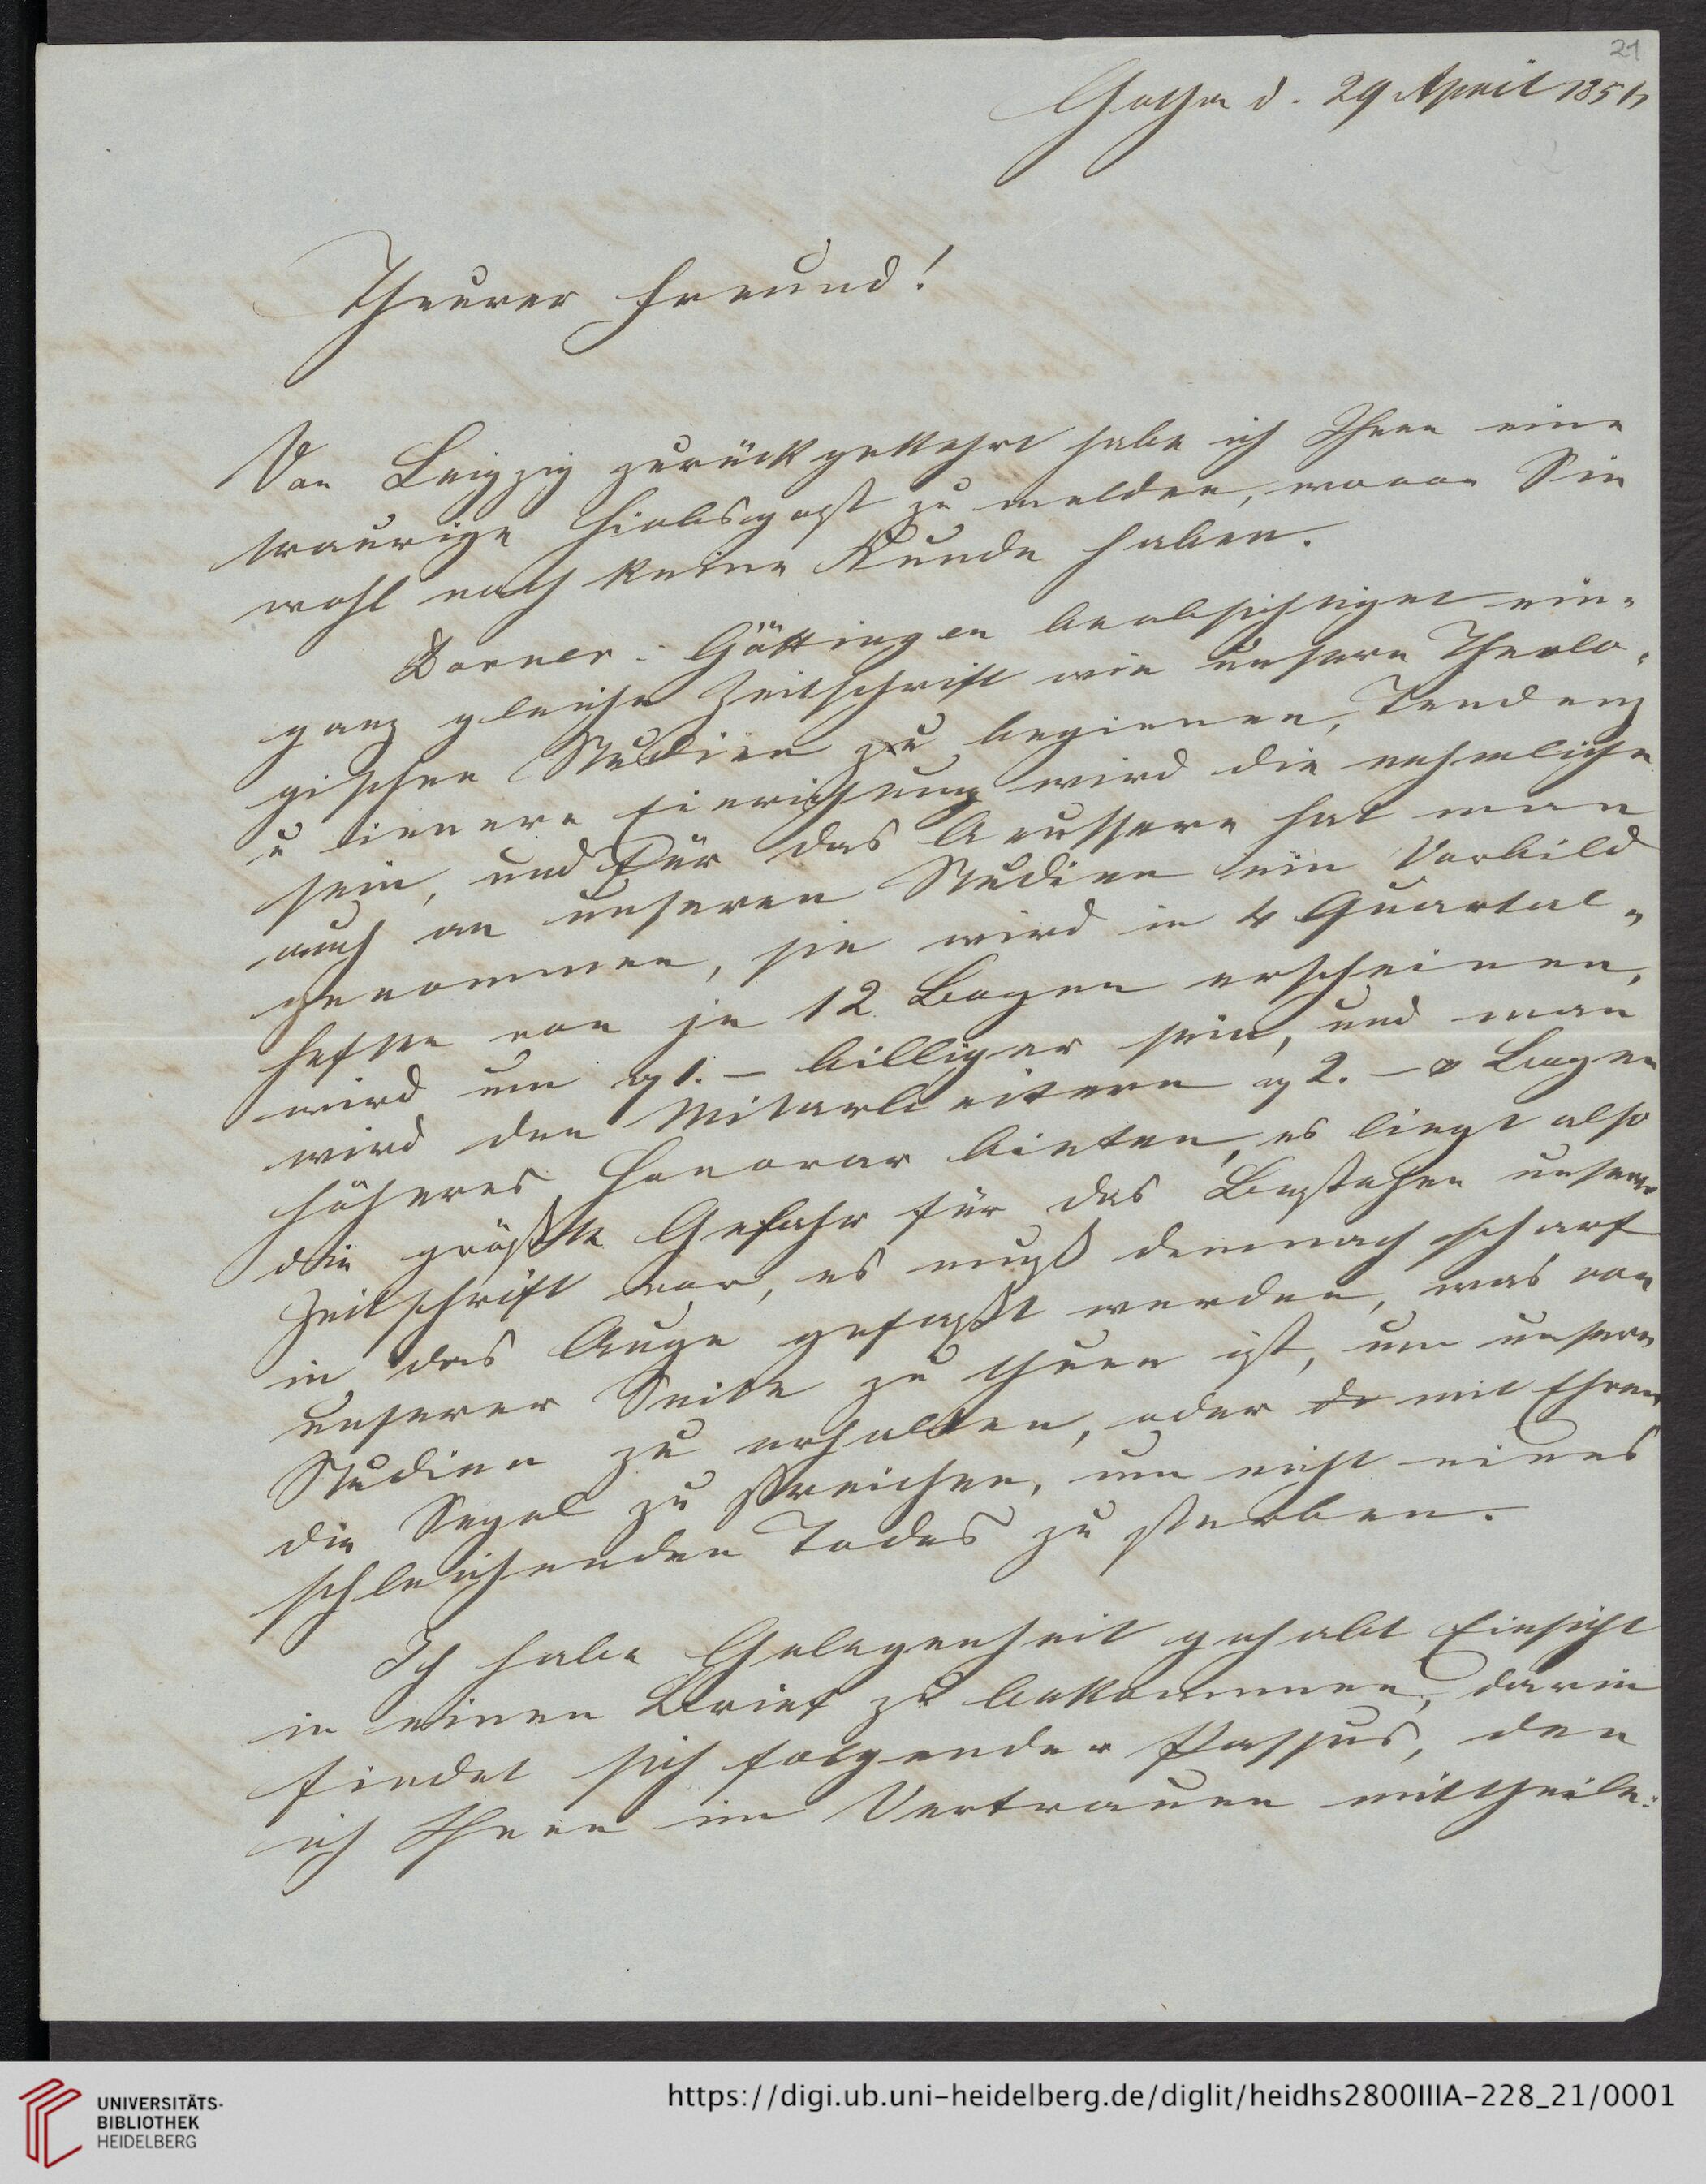 21
Gotha d. 29 April 185
Theurer Freund!
Von Leipzig zurückgekehrt habe ich Ihnen eine
traurige Hiobspost zu melden, wovon Sie
wohl noch keine Kunde haben.
Dorner-Göttingen beabsichtiget eine
ganz gleiche Zeitschrift wie unsere Theolo-
gischen Studien zu beginnen, Tendenz
u innere Einrichtung wird die nehmliche
sein, und für das Aeussere hat man
auch an unseren Studien ein Vorbild
genommen, sie wird in 4 Quartal-
heften von je 12 Bogen erscheinen,
wird um 1.– billiger sein, und man
wird den Mitarbeitern 2.– Bogen
höheres Honorar bieten, es liegt also
die größte Gefahr für das Bestehen unserer
Zeitschrift vor, es muß demnach scharf
in das Auge gefaßt werden, was von
unserer Seite zu thun ist, um unsere
Studien zu erhalten, oder mit Ehren
die Segel zu streichen, um nicht eines
schleichenden Todes zu sterben.
Ich habe Gelegenheit gehabt Einsicht
in einen Brief zu bekommen, darin
findet sich folgender Passus, den
ich Ihnen im Vertrauen mittheile:
UNIVERSITÄTS-
BIBLIOTHEK
HEIDELBERG
https://digi.ub.uni-heidelberg.de/diglit/heidhs2800IIIA-228_21/0001